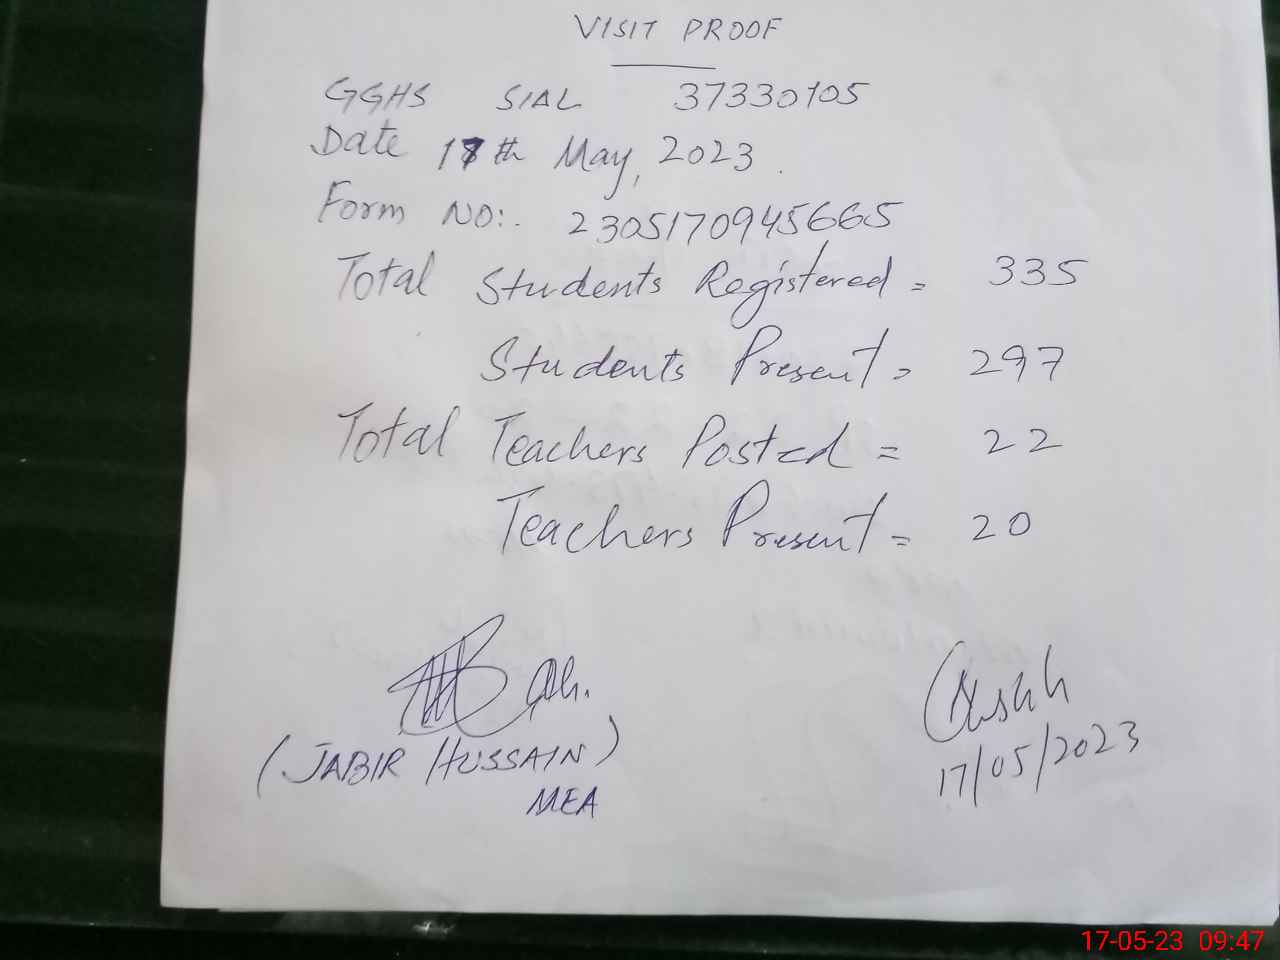 VISIT PROOF
GGHS SIAL 37330105
Date 17th May, 2023.
Form NO:. 2305170945665
Total Students Registered = 335
Students Present = 297
Total Teachers Posted = 22
Teachers Present = 20
(JABIR HUSSAIN)
MEA
17/05/2023
17-05-23 09:47